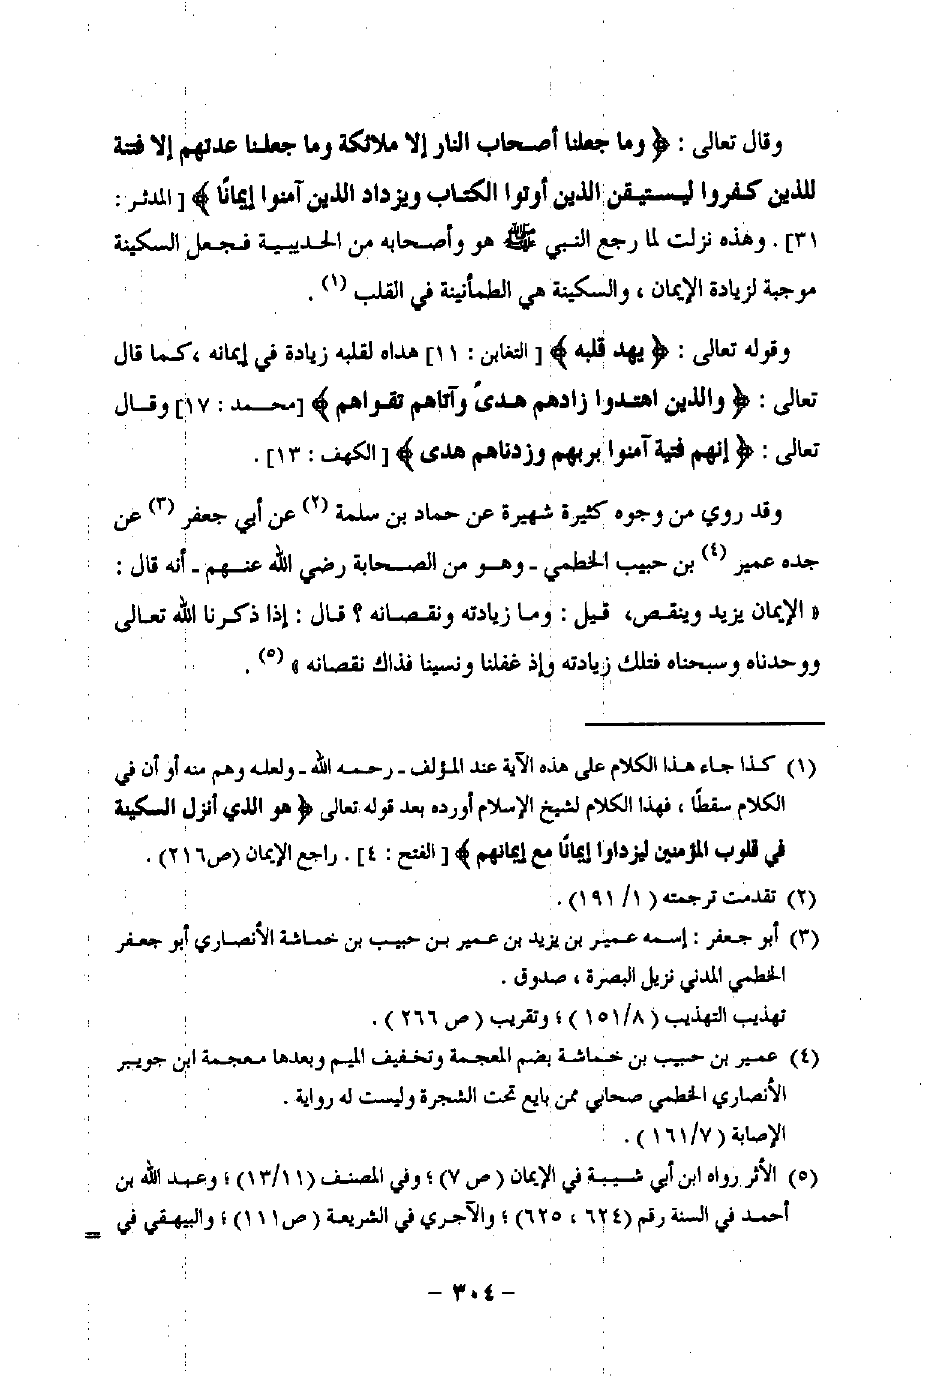 وقال تعالى : ﴿ وما جعلنا أصحاب النار إلا ملائكة وما جعلنا عدتهم إلا فتنة
للذين كفروا ليستيقن الذين أوتوا الكتاب ويزداد الذين آمنوا إيمانًا ﴾ [ المدثر :
٣١] . وهذه نزلت لما رجع النبي ﷺ هو وأصحابه من الحديبية فجعل السكينة
موجبة لزيادة الإيمان ، والسكينة هي الطمأنينة في القلب (١) .
وقوله تعالى : ﴿ يهد قلبه ﴾ [ التغابن : ١١] هداه لقلبه زيادة في إيمانه ،كما قال
تعالى : ﴿ والذين اهتدوا زادهم هدىً وآتاهم تقواهم ﴾ [محمد : ١٧] وقال
تعالى : ﴿ إنهم فتية آمنوا بربهم وزدناهم هدى ﴾ [ الكهف : ١٣] .
وقد روي من وجوه كثيرة شهيرة عن حماد بن سلمة (٢) عن أبي جعفر (٣) عن
جده عمير (٤) بن حبيب الخطمي ـ وهو من الصحابة رضي الله عنهم ـ أنه قال :
« الإيمان يزيد وينقص، قيل : وما زيادته ونقصانه ؟ قال : إذا ذكرنا الله تعالى
ووحدناه وسبحناه فتلك زيادته وإذ غفلنا ونسينا فذاك نقصانه » (٥) .
(١) كذا جاء هذا الكلام على هذه الآية عند المؤلف ـ رحمه الله ـ ولعله وهم منه أو أن في
الكلام سقطًا ، فهذا الكلام لشيخ الإسلام أورده بعد قوله تعالى ﴿ هو الذي أنزل السكينة
في قلوب المؤمنين ليزدادوا إيمانًا مع إيمانهم ﴾ [ الفتح : ٤] . راجع الإيمان (ص٢١٦) .
(٢) تقدمت ترجمته ( ١/ ١٩١) .
(٣) أبو جعفر : إسمه عمير بن يزيد بن عمير بن حبيب بن خماشة الأنصاري أبو جعفر
الخطمي المدني نزيل البصرة ، صدوق .
تهذيب التهذيب ( ١٥١/٨ ) ؛ وتقريب ( ص ٢٦٦ ) .
(٤) عمير بن حبيب بن خماشة بضم المعجمة وتخفيف الميم وبعدها معجمة ابن جويبر
الأنصاري الخطمي صحابي ممن بايع تحت الشجرة وليست له رواية .
الإصابة ( ١٦١/٧ ) .
(٥) الأثر رواه ابن أبي شيبة في الإيمان ( ص ٧) ؛ وفي المصنف (١٣/١١) ؛ وعبد الله بن
أحمد في السنة رقم (٦٢٤ ، ٦٢٥) ؛ والآجري في الشريعة ( ص١١١) ؛ والبيهقي في =
- ٣٠٤ -